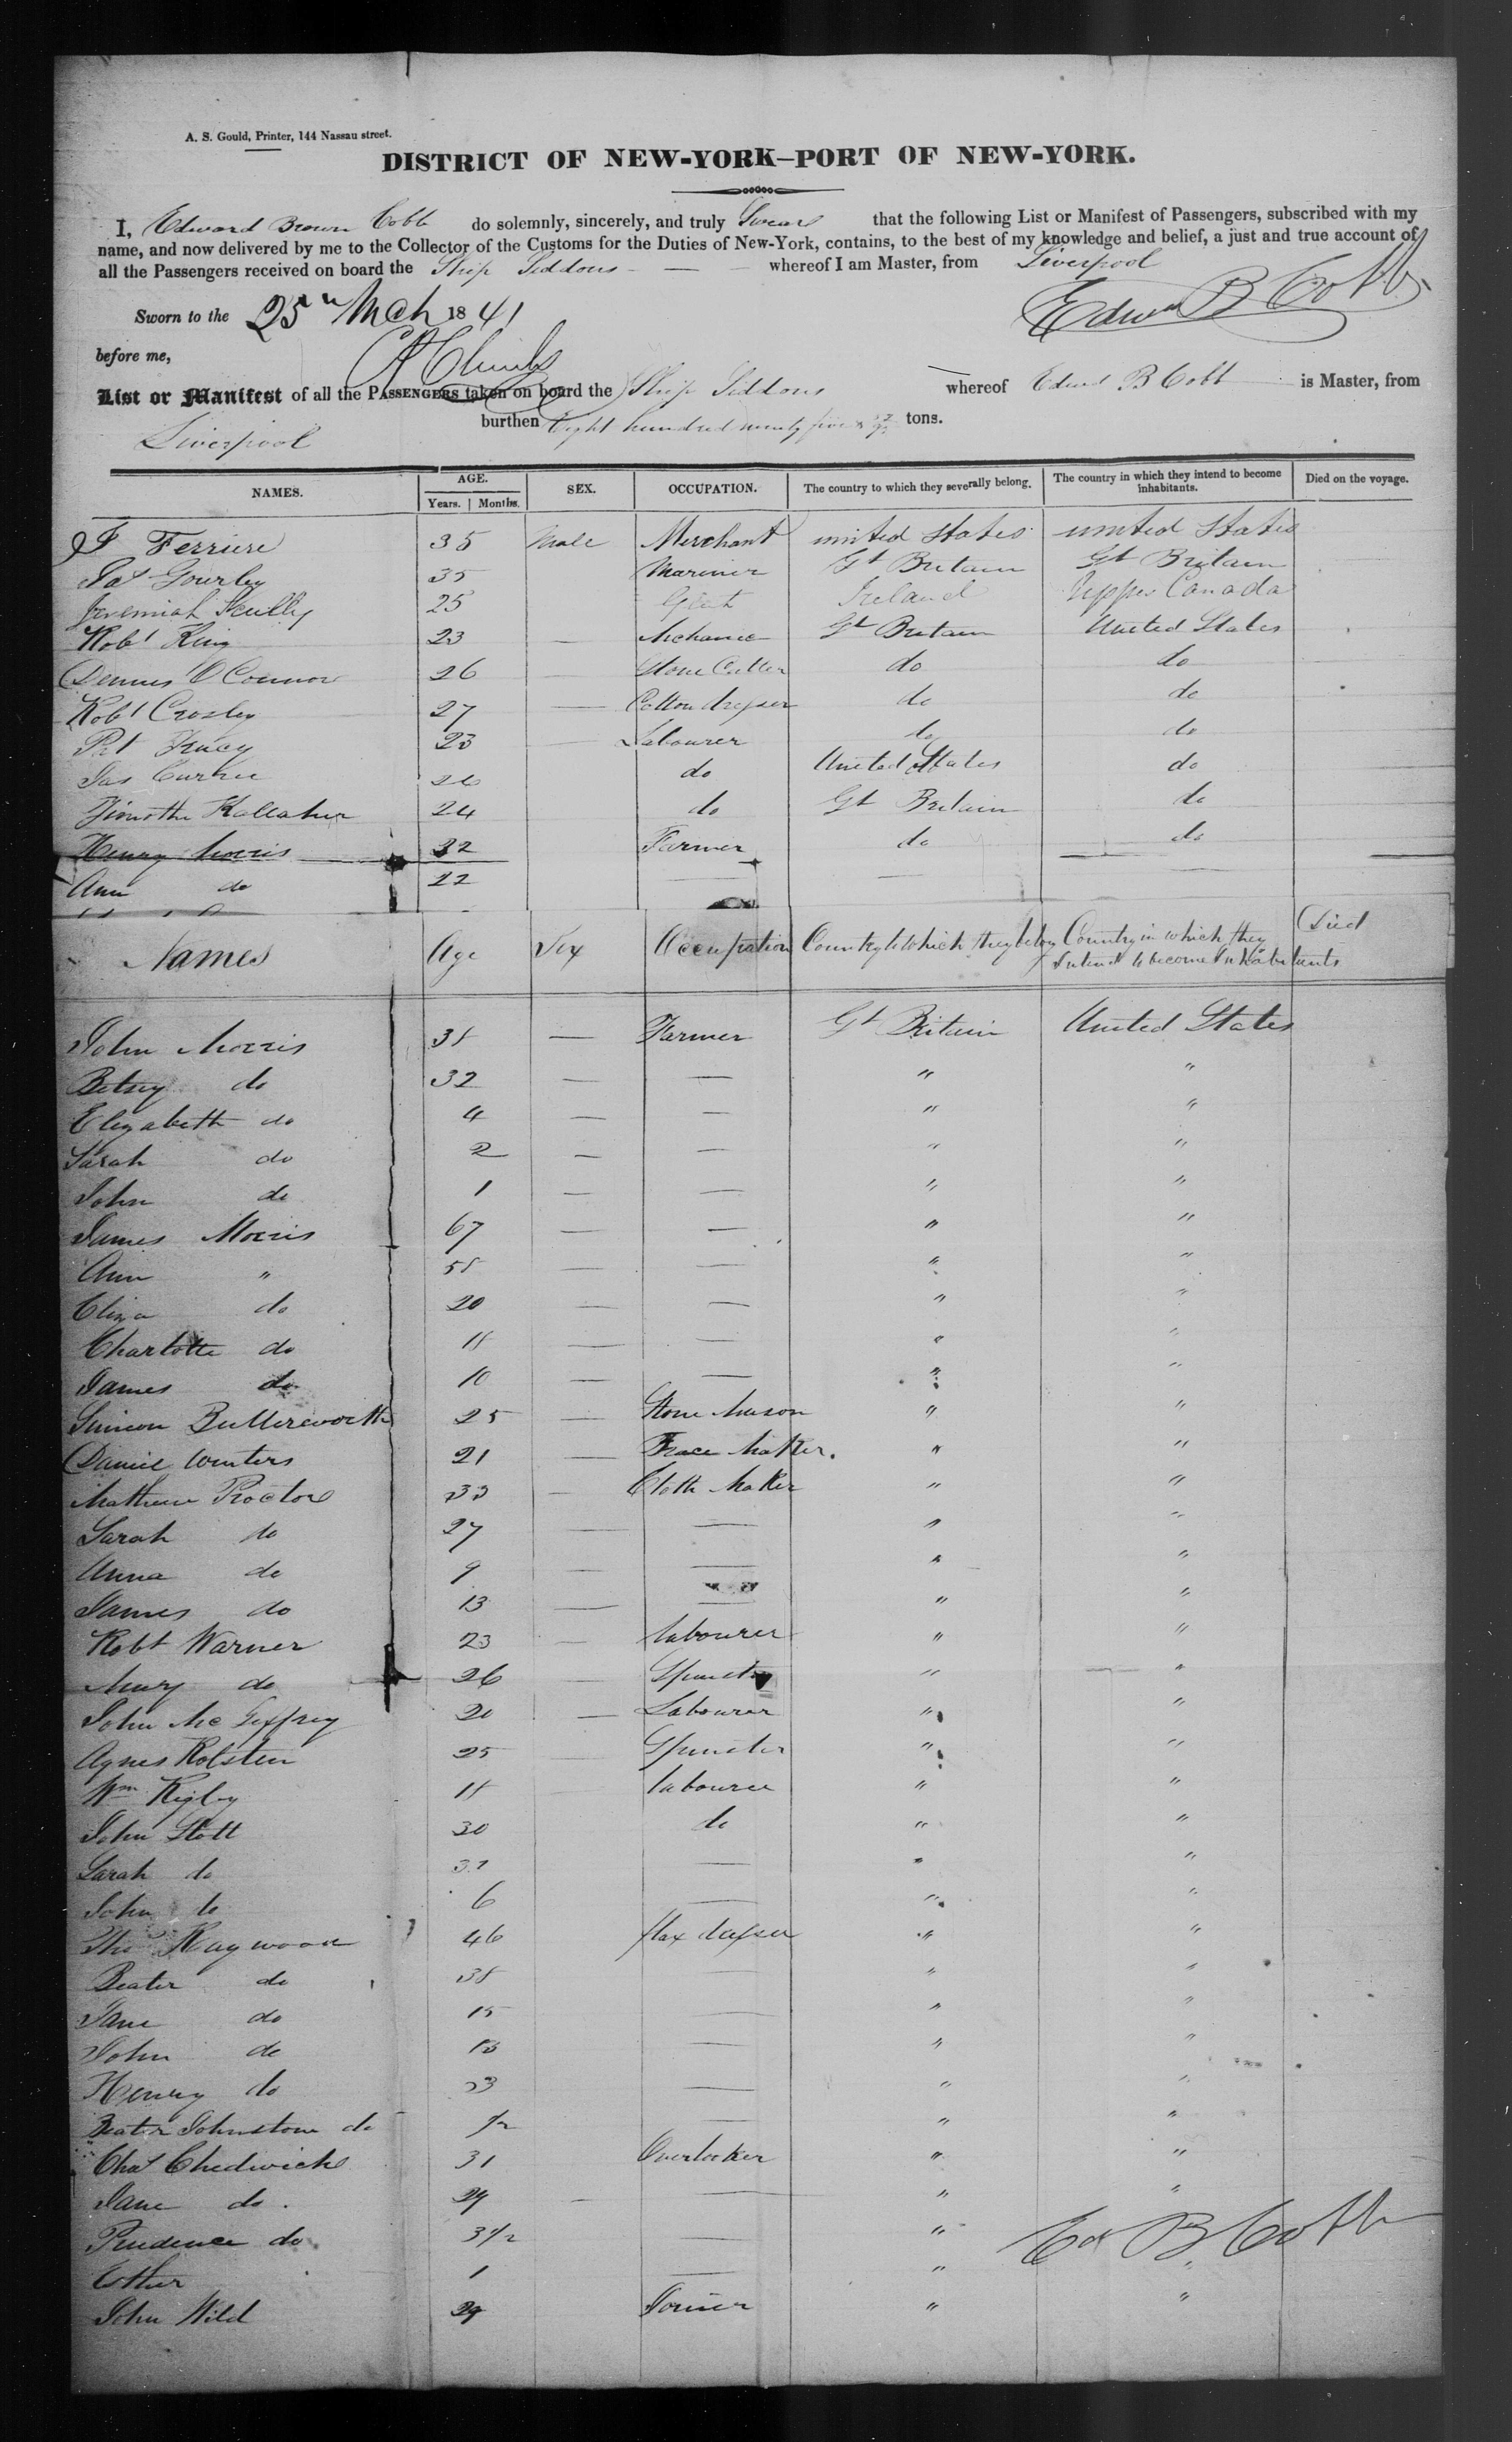 A. S. Gould, Printer, 144 Nassau street.
DISTRICT OF NEW-YORK–PORT OF NEW-YORK.
I, Edward Brown Cobb do solemnly, sincerely, and truly Swear that the following List or Manifest of Passengers, subscribed with my
name, and now delivered by me to the Collector of the Customs for the Duties of New-York, contains, to the best of my knowledge and belief, a just and true account of
all the Passengers received on board the Ship Siddons whereof I am Master, from Liverpool
Sworn to the 25th Mch 1841 Edwd B Cobb
before me,
List or Manifest of all the PASSENGERS taken on board the Ship Siddons whereof Edwd B Cobb is Master, from
Liverpool burthen Eight hundred ninety five & tons.
NAMES. AGE. Years. Months. SEX. OCCUPATION. The country to which they severally belong. The country in which they intend to become inhabitants. Died on the voyage.
F Ferriere 35 Male Merchant united States united States
Jas Gourley 35 Mariner Gt Britain Gt Britain
Jeremiah Scully 25 Gent Ireland Upper Canada
Robt King 23 — Mechanic Gt Britain United States
Dennis O'Connor 26 — Stone Cutter do do
Robt Crosley 27 — Cotton dresser do do
Pat 23 — Labourer do do
Jas 26 do United States do
Timothy Kallaher 24 do Gt Britain do
Henry Morris 32 Farmer do do
Ann do 22 — — —
Names Age Sex Occupation Country to which they belong Country in which they Intend to become Inhabitants Died
John Morris 38 — Farmer Gt Britain United States
Betsey do 32 — — " "
Elizabeth do 4 — — " "
Sarah do 2 — — " "
John do 1 — — " "
James Morris 67 — — " "
Ann " 58 — — " "
Eliza do 20 — — " "
Charlotte do 11 — — " "
James do 10 — — " "
Simeon Butterworth 25 — Stone Mason " "
Daniel Winters 21 — Maker. " "
Mathew Proctor 33 — Cloth Maker " "
Sarah do 27 — — " "
Anna do 9 — — " "
James do 13 — — " "
Robt Warner 23 — labourer " "
Mary do 26 — Spinster " "
John Mc Geffrey 20 — Labourer " "
Agnes Rolsten 25 — Spinster " "
Wm Rigby 18 labourer " "
John Stott 30 do " "
Sarah do 32 — " "
John do 6 — " "
Tho Haywood 46 flax dresser " "
do 38 — " "
Jane do 15 — " "
John do 13 — " "
Henry do — " "
Johnstone do 1/2 — " "
Chas Chedwick 31 Overlooker " "
Jane do. 29 — — " "
Prudence do. 3 1/2 — " Ed B Cobb
Esther 1 — " "
John Wild 29 Joiner " "